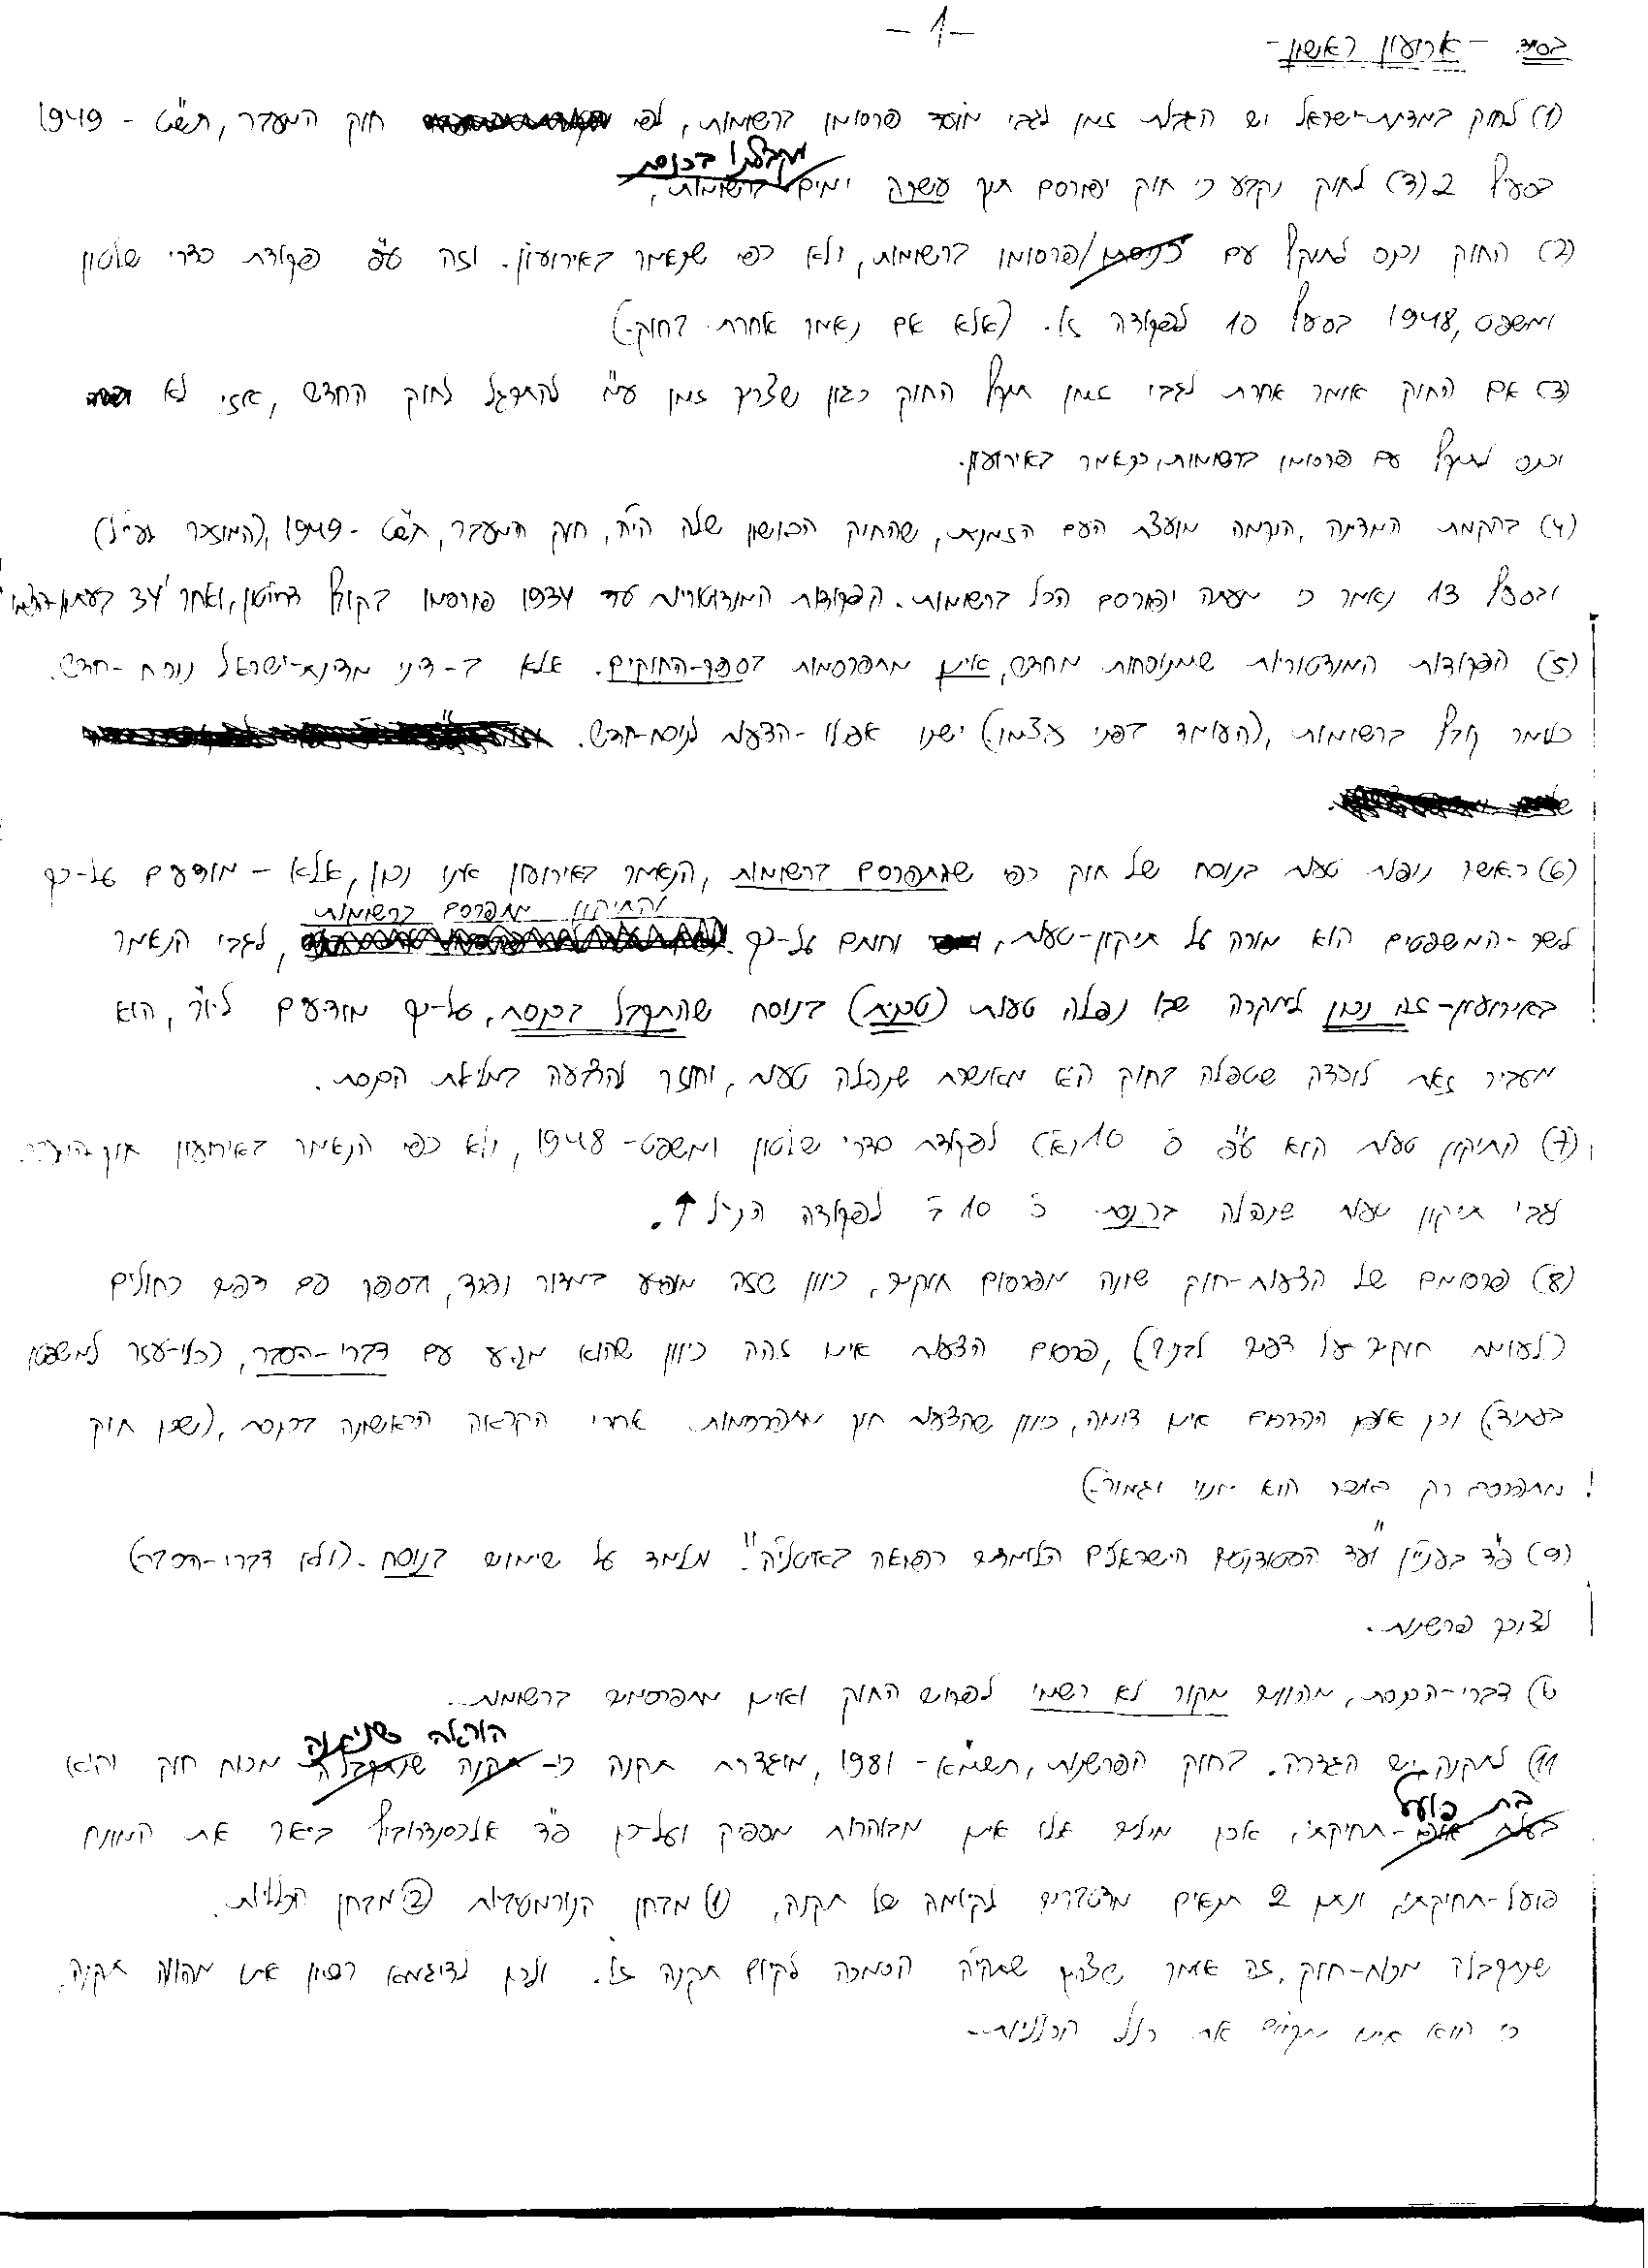 - 1 -
בס"ד - אירועון ראשון -
(1) לחוק במדינת-ישראל יש הגבלת זמן לגבי מועד פרסומו ברשומות, לפי חוק המעבר, תש"ט - 1949
מקבלתו בכנסת
בסעיף 2(ד) לחוק נקבע כי חוק יפורסם תוך עשרה ימים ברשומות,
(2) החוק נכנס לתוקף עם כניסתו/פרסומו ברשומות, ולא כפי שנאמר באירועון. וזה עפ"י פקודת סדרי שלטון
ומשפט, 1948 בסעיף 10 לפקודה זו. (אלא אם נאמר אחרת בחוק.)
(3) אם החוק אומר אחרת לגבי זמן תוקף החוק כגון שצריך זמן ע"מ להתרגל לחוק החדש, אזי לא
נכנס לתוקף עם פרסומו ברשומות, כנאמר באירועון.
(4) בהקמת המדינה, הוקמה מועצת העם הזמנית, שהחוק הראשון שלה היה, חוק המעבר, תש"ט - 1949, (המוזכר לעיל)
ובסעיף 13 נאמר כי מעתה יפורסם הכל ברשומות. הפקודות המנדטוריות עד 1934 פורסמו בקובץ דרייטון, ואחר 34'
(5) הפקודות המנדטוריות שמנוסחות מחדש, אינן מתפרסמות בספר-החוקים. אלא ב-דיני מדינת-ישראל נוסח-חדש.
כלומר קובץ ברשומות, (העומד בפני עצמו) ישנו אפילו -הצעות לנוסח-חדש.
(6) כאשר נופלת טעות בנוסח של חוק כפי שהתפרסם ברשומות, הנאמר באירועון אינו נכון, אלא - מודיעים על-כך
והתיקון מתפרסם ברשומות
לשר-המשפטים הוא מורה על תיקון-טעות, וחותם על-כך. , לגבי הנאמר
באירועון-זה נכון למקרה שבו נפלה טעות (טכנית) בנוסח שהתקבל בכנסת, על-כך מודיעים ליו"ר, הוא
מעביר זאת לועדה שטפלה בחוק היא מאשרת שנפלה טעות, וחוזר להצבעה במליאת הכנסת.
(7) התיקון טעות הוא עפ"י ס' 10(א) לפקודת סדרי שלטון ומשפט - 1948, ולא כפי הנאמר באירועון חוק-המעבר.
לגבי תיקון טעות שנפלה בכנסת ס' 10 ב' לפקודה הנ"ל ↑.
(8) פרסומם של הצעות-חוק שונה מפרסום חוקים, כיוון שזה מופיע במדור נפרד, בספר עם דפים כחולים
(לעומת חוקים על דפים לבנים), פרסום הצעות אינו זהה כיוון שהוא מגיע עם דברי-הסבר, (כלי-עזר למשפטן
בעתיד) וכן הפרסום אינו דומה, כיוון שהצעות חוק מתפרסמות אחרי הקריאה הראשונה בכנסת, (שכן חוק
מתפרסם רק כאשר הוא וגמור.)
(9) פ"ד בעניין "ועד הסטודנטים הישראלים הלומדים רפואה באיטליה". מלמד על שימוש בנוסח. (ולא דברי-הסבר)
לצורך פרשנות.
(10) דברי-הכנסת, מהווים מקור לא רשמי לפרוש החוק ואינן מתפרסמים ברשומות.
הוראה שניתנה
(11) לתקנה יש הגדרה. בחוק הפרשנות, תשמ"א - 1981, מוגדרת תקנה כ-תקנה שנתקבלה מכוח חוק והיא
בת פועל
בעלת אופי-תחיקתי, אכן מילים אלו אינן מבוהרות מספיק ועל-כן פ"ד אלכסנדרוביץ ביאר את המונח
פועל-תחיקתי, ונתן 2 תנאים מצטברים לקיומה של תקנה, (1) מבחן הנורמטיביות (2) מבחן הכלליות.
שנתקבלה מכוח-חוק, זה אומר שצריך שתהיה הסמכה לקיום תקנה זו. ולכן לדוגמא רשיון אינו מהווה תקנה,
כי הוא אינו מקיים את כלל הכלליות-